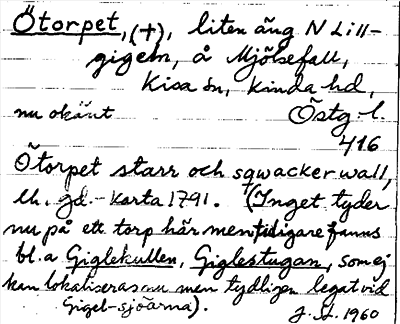 Ötorpet, (+), liten äng N Lill-
gigeln, å Mjölsefall,
Kisa sn, Kinda hd,
nu okänt Östg. l.
416
Ötorpet starr och sqwacker wall,
lh. gd.-karta 1791. (Inget tyder
nu på ett torp här men tidigare fanns
bl.a Giglekullen, Giglestugan, som ej
kan lokaliseras nu men tydligen legat vid
Gigel-sjöarna). J. A. 1960